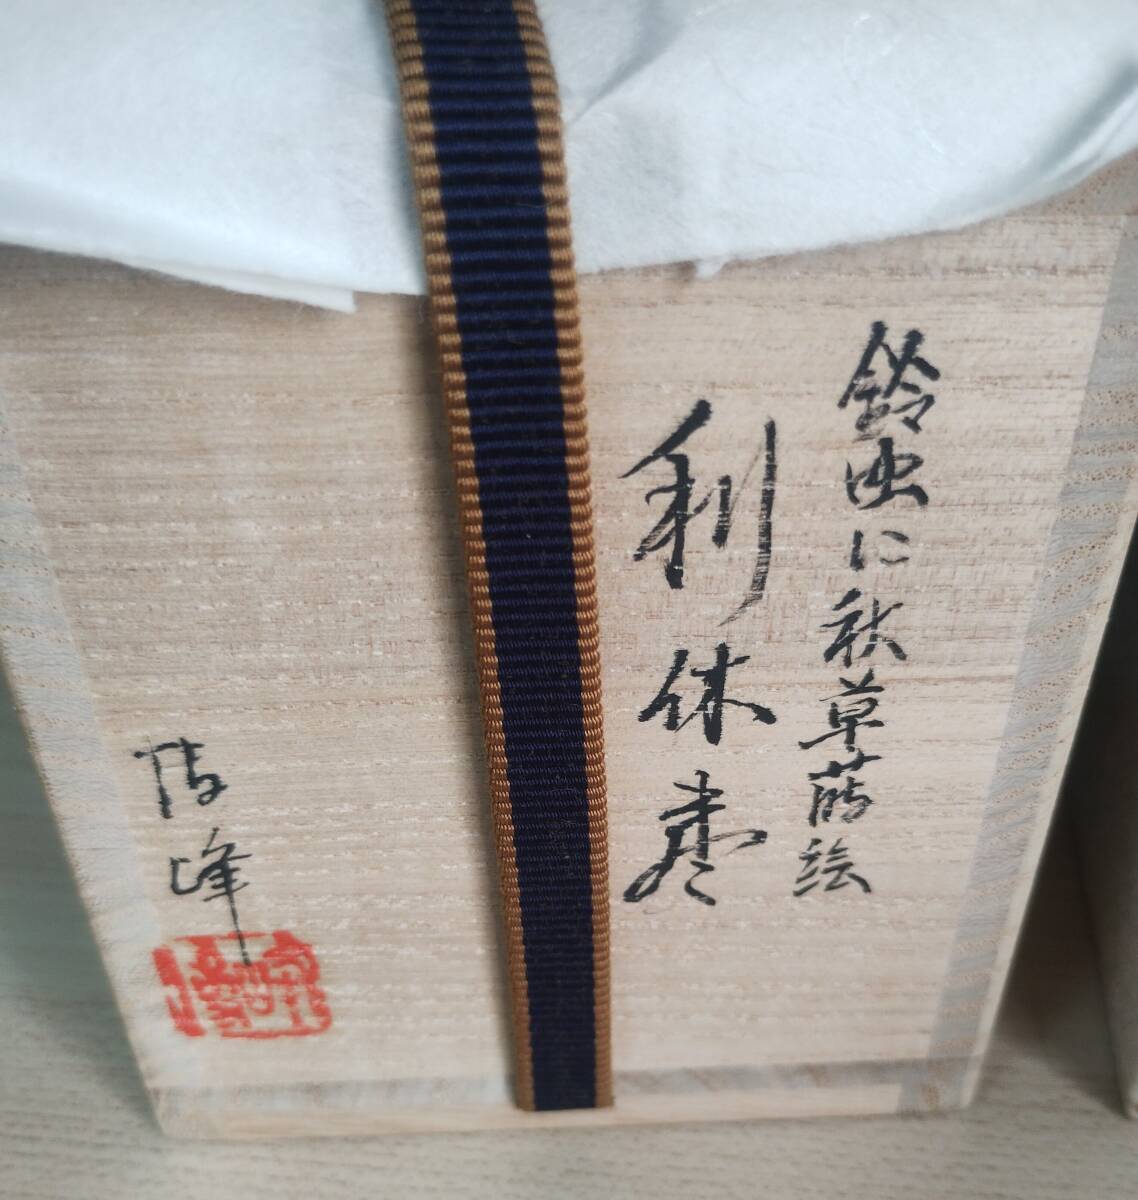 鈴虫に秋草蒔絵
利休棗
峰